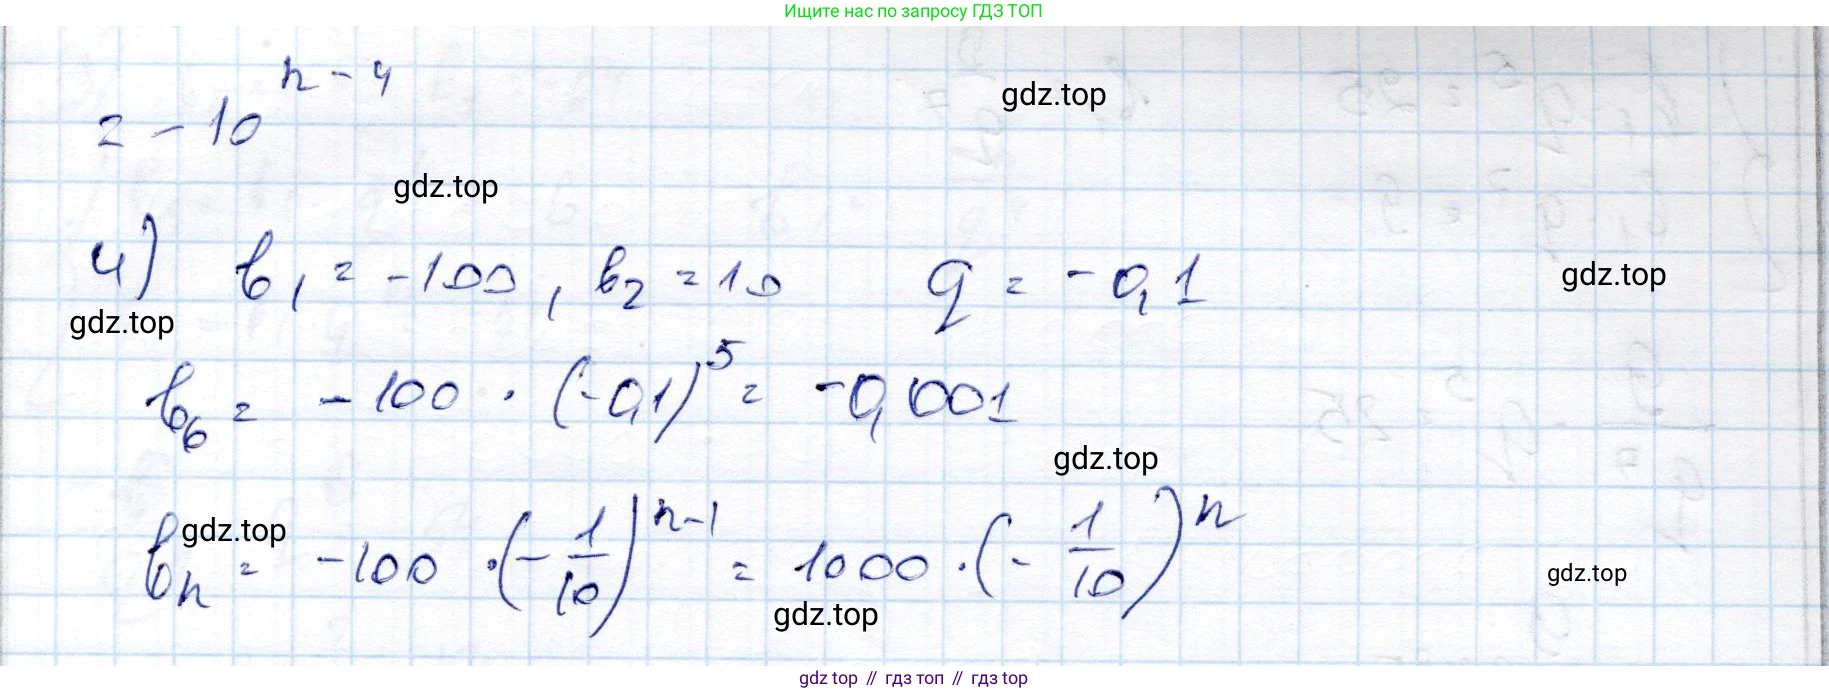 Ищите нас по запросу ГДЗ ТОП
= -10^{n-4}
gdz.top
gdz.top
4) b₁ = -100, b₂ = 10 q = -0,1
gdz.top
gdz.top
b₆ = -100 · (-0,1)⁵ = -0,001
gdz.top
gdz.top
bₙ = -100 · (-1/10)^{n-1} = 1000 · (-1/10)^n
gdz.top
gdz.top
gdz top // гдз топ // гдз top